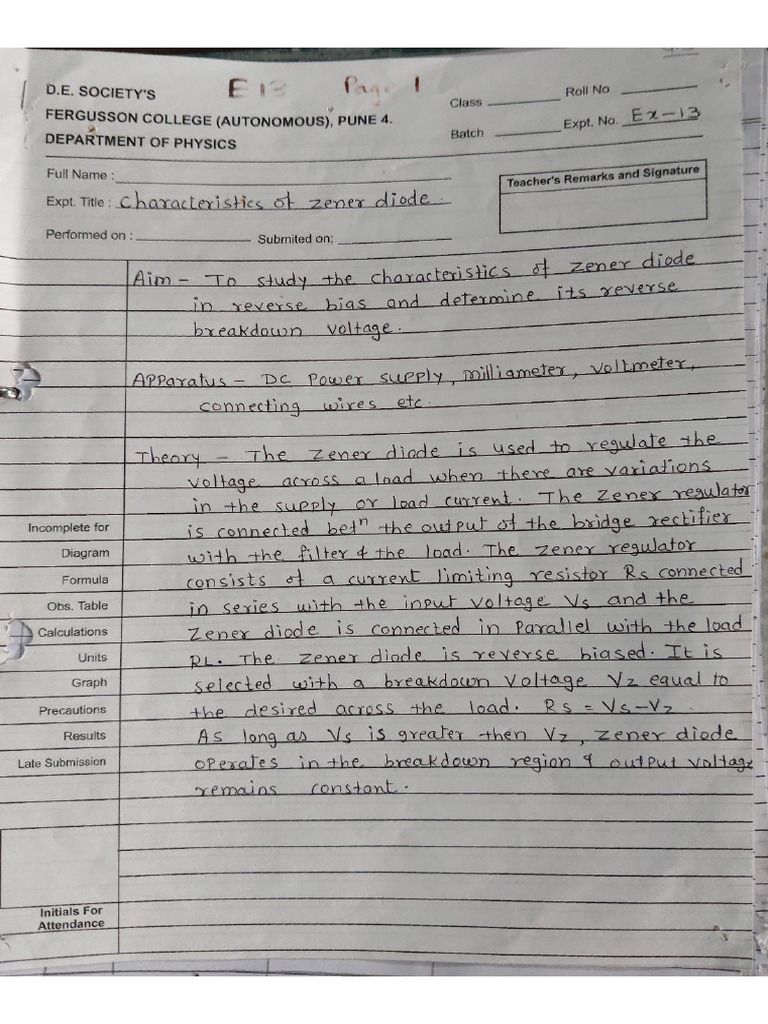 E13 Page 1
D.E. SOCIETY'S
FERGUSSON COLLEGE (AUTONOMOUS), PUNE 4.
DEPARTMENT OF PHYSICS
Class
Roll No
Batch
Expt. No. Ex-13
Full Name :
Expt. Title : Characteristics of zener diode.
Performed on :
Submited on;
Teacher's Remarks and Signature
Aim - To study the characteristics of zener diode
in reverse bias and determine its reverse
breakdown voltage.
Apparatus - DC power supply, milliameter, voltmeter,
connecting wires etc.
Theory - The zener diode is used to regulate the
voltage across a load when there are variations
in the supply or load current. The zener regulator
is connected betn the output of the bridge rectifier
with the filter & the load. The zener regulator
consists of a current limiting resistor Rs connected
in series with the input voltage Vs and the
zener diode is connected in parallel with the load
RL. The zener diode is reverse biased. It is
selected with a breakdown voltage Vz equal to
the desired across the load. Rs = Vs-Vz.
As long as Vs is greater then Vz, zener diode
operates in the breakdown region & output voltage
remains constant.
Incomplete for
Diagram
Formula
Obs. Table
Calculations
Units
Graph
Precautions
Results
Late Submission
Initials For
Attendance